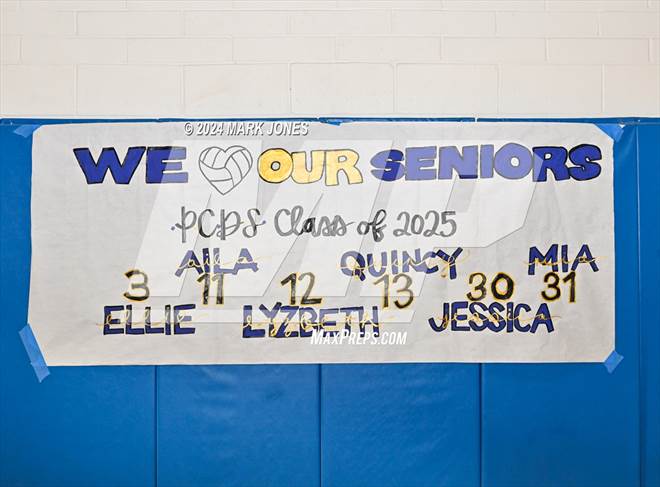 © 2024 MARK JONES
WE OUR SENIORS
PCDS Class of 2025
AILA QUINCY MIA
3 11 12 13 30 31
ELLIE LYZBETH JESSICA
MAXPREPS.COM